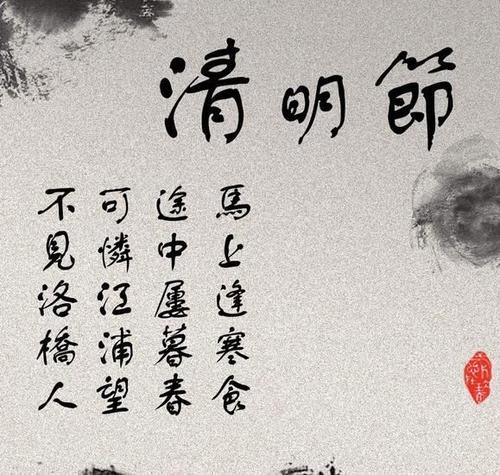 清明節
馬上逢寒食
途中屢暮春
可憐江浦望
不見洛橋人